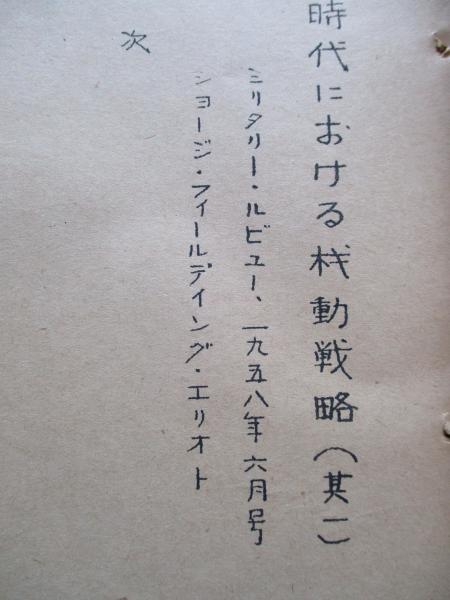 時代における栈動戦略(其一)
ミリタリー・ルビュー、一九五八年六月号
ショージ・フィールディング・エリオト
次